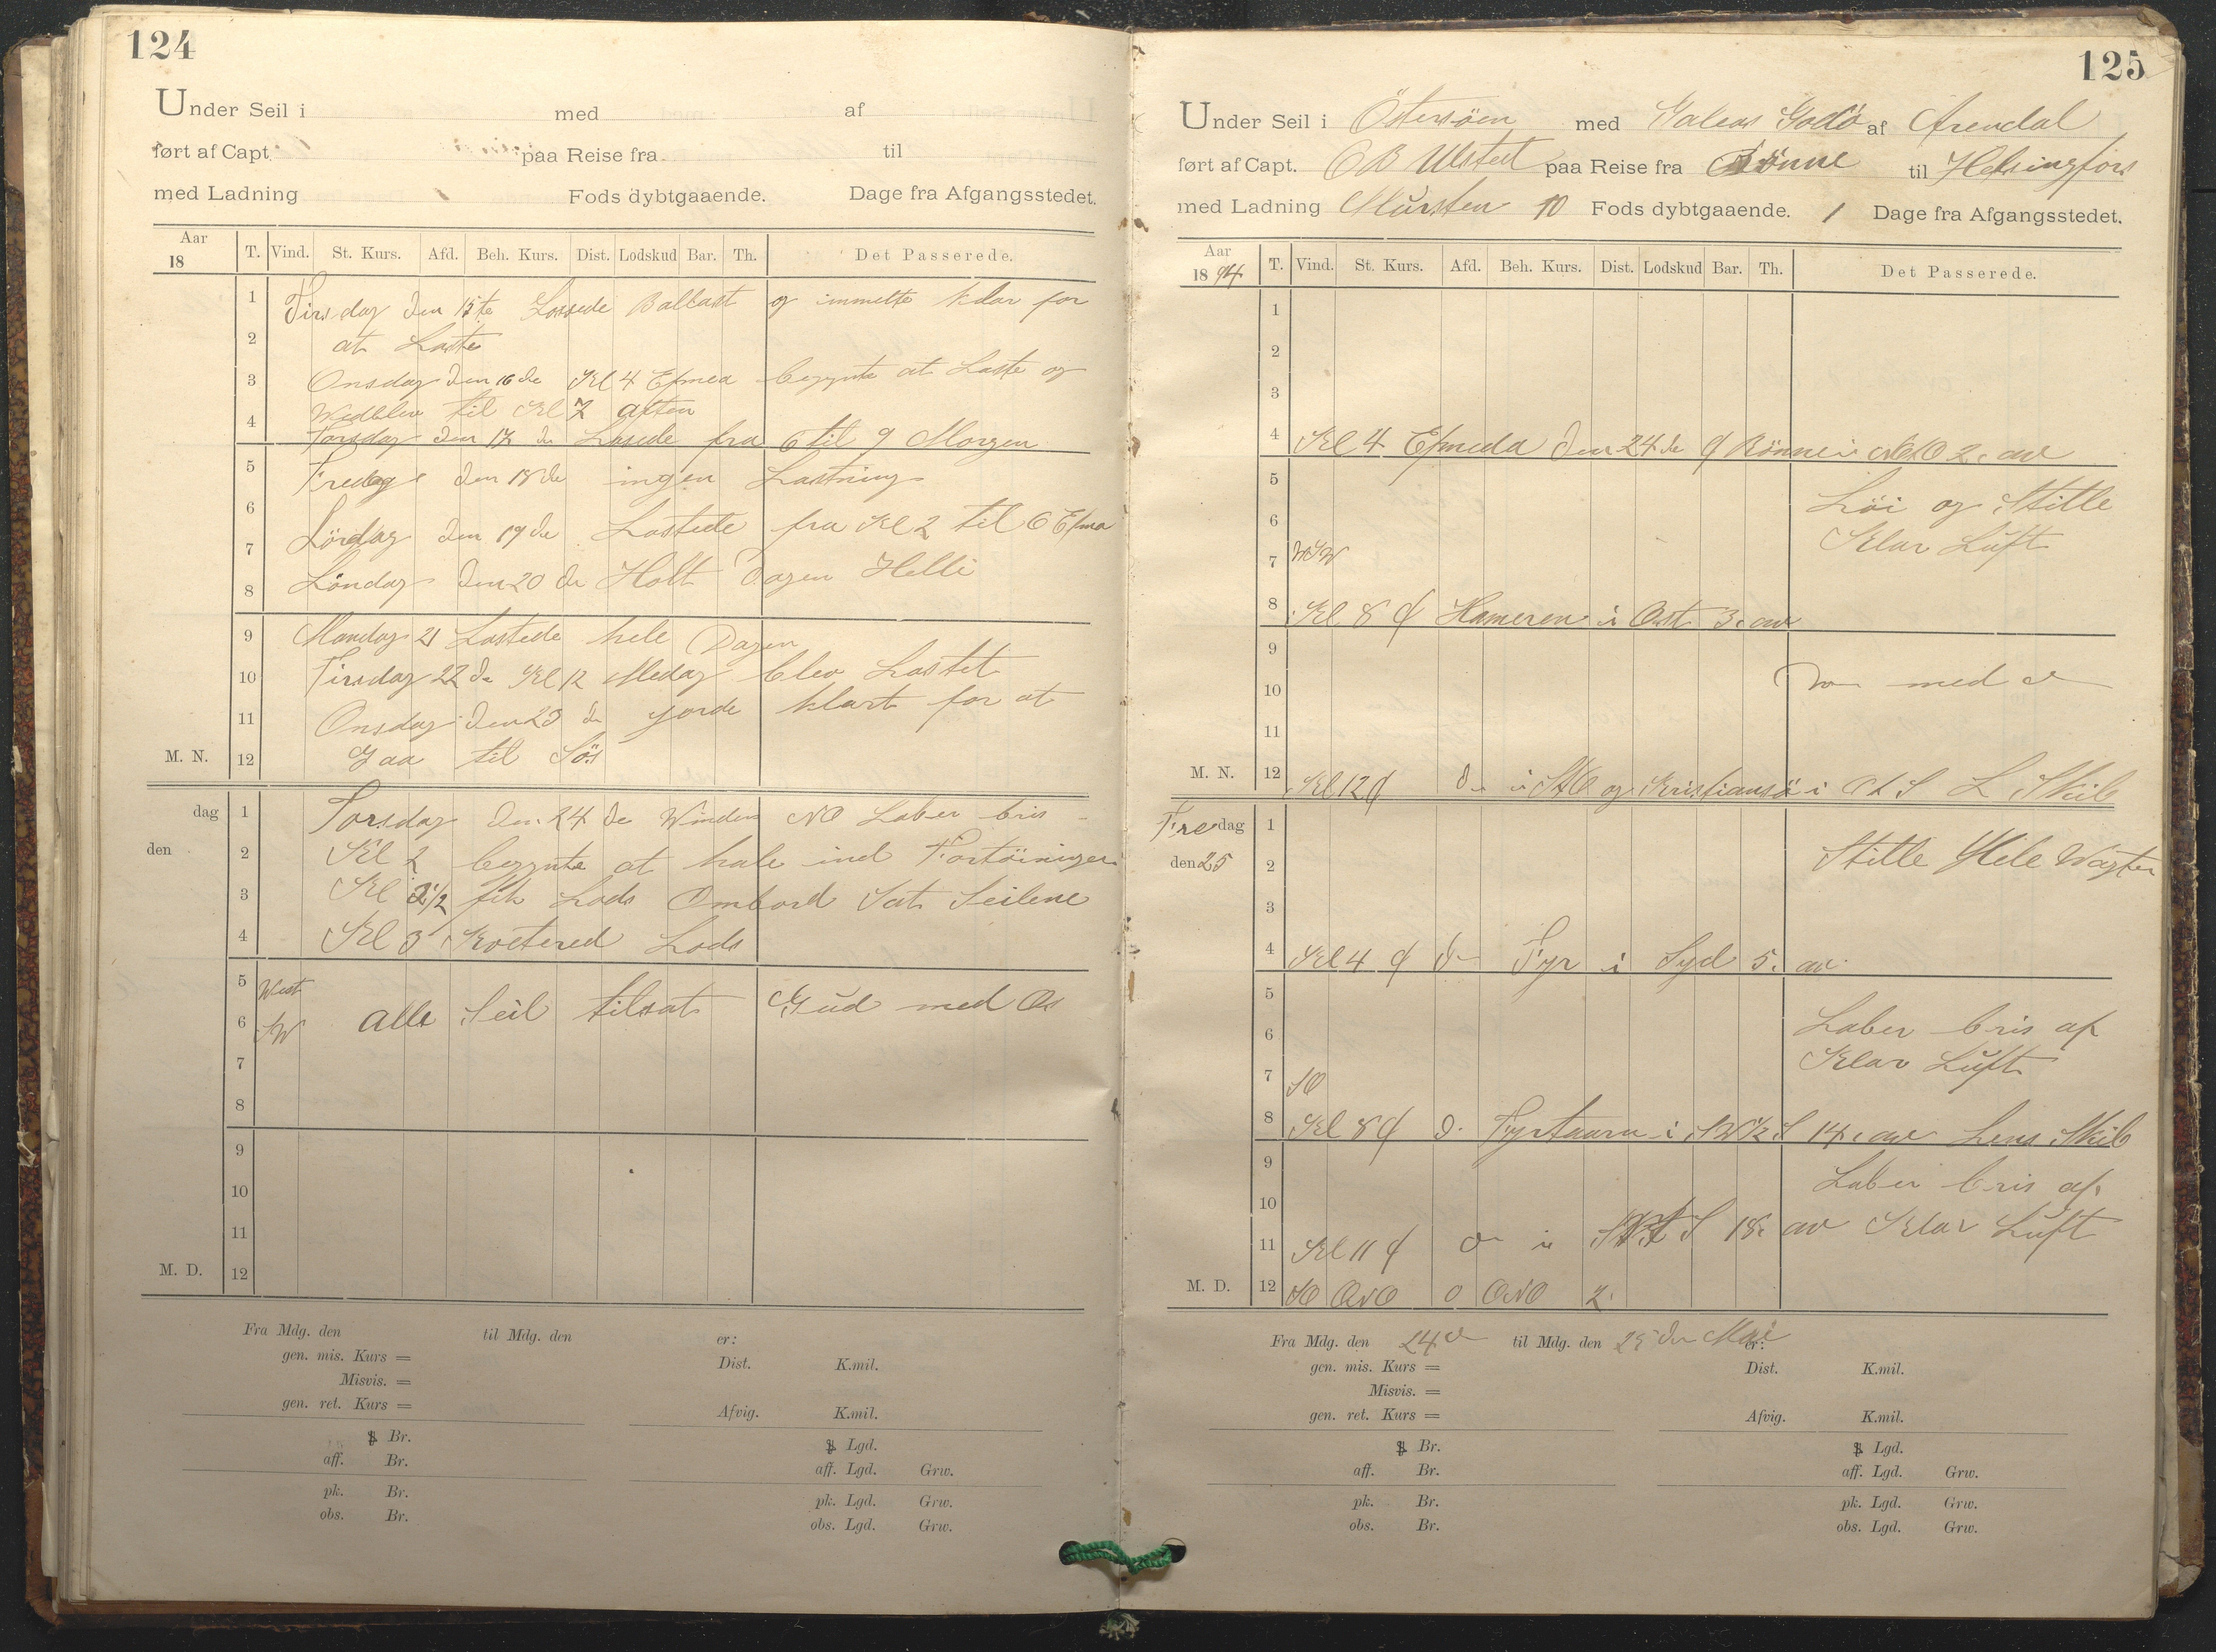 124
Under Seil i med af
ført af Capt. paa Reise fra til
med Ladning Fods dybtgaaende. Dage fra Afgangsstedet.
Aar 18 T. Vind. St. Kurs. Afd. Beh. Kurs. Dist. Lodskud Bar. Th. Det Passerede.
1 Tirsdag den 15te Lossede Ballast og immelte klar for
2 at Laste
3 Onsdag den 16de Kl 4 Efmed begynte at Laste og
Wedblev til Kl 7 aften
4 Torsdag den 17 de Lasede fra 6 til 9 Morgen
5 Fredag den 18de ingen Lastning
6
7 Lördag den 19de Lastede fra Kl 2 til 6 Efma
8 Löndag den 20 de Holt Dagen Helli
9 Mandag 21 Lastede hele Dagen
10 Tirsdag 22 de Kl 12 Medag blev Lastet
11 Onsdag den 23 de gorde klart for at
M. N. 12 Gaa til Sös
dag 1 Torsdag den 24 de Winden NO Laber bris
den 2 Kl 2 begynte at hale ind Fortöininger
3 Kl 2 1/2 fik Lods Ombord Sat Seilene
4 Kl 3 Kvetered Lods
5 West
6 SW alle Seil tilsat Gud med Os
7
8
9
10
11
M. D. 12
Fra Mdg. den til Mdg. den er:
gen. mis. Kurs = Dist. K.mil.
Misvis. =
gen. ret. Kurs = Afvig. K.mil.
Br. Lgd.
aff. Br. aff. Lgd. Grw.
pk. Br. pk. Lgd. Grw.
obs. Br. obs. Lgd. Grw.
125
Under Seil i Östersöen med Galeas Godö af Arendal
ført af Capt. O B Ulsted paa Reise fra Rönne til Helsingfors
med Ladning Mursten 10 Fods dybtgaaende. 1 Dage fra Afgangsstedet.
Aar 18 94 T. Vind. St. Kurs. Afd. Beh. Kurs. Dist. Lodskud Bar. Th. Det Passerede.
1
2
3
4 Kl 4 Efmeda den 24 de Rönne i 2 av
5 Löi og Stille
6
7 WSW Klar Luft
8 Kl 8 Hameren i Ost 3 av
9
10 med
11
M. N. 12 Kl 12 i og Kristiansö i L Skib
Fredag 1
den 25 2 Stille Hele Wagten
3
4 Kl 4 Fyr i Syd 5 av
5
6 Laber bris af
7 SO Klar Luft
8 Kl 8 Fyrtaarn i 14 av Lens Skib
9
10 Laber bris af
11 Kl 11 18 av Klar Luft
M. D. 12 SO ONO 0 ONO 2
Fra Mdg. den 24 til Mdg. den 25 den Mai er:
gen. mis. Kurs = Dist. K.mil.
Misvis. =
gen. ret. Kurs = Afvig. K.mil.
Br. Lgd.
aff. Br. aff. Lgd. Grw.
pk. Br. pk. Lgd. Grw.
obs. Br. obs. Lgd. Grw.